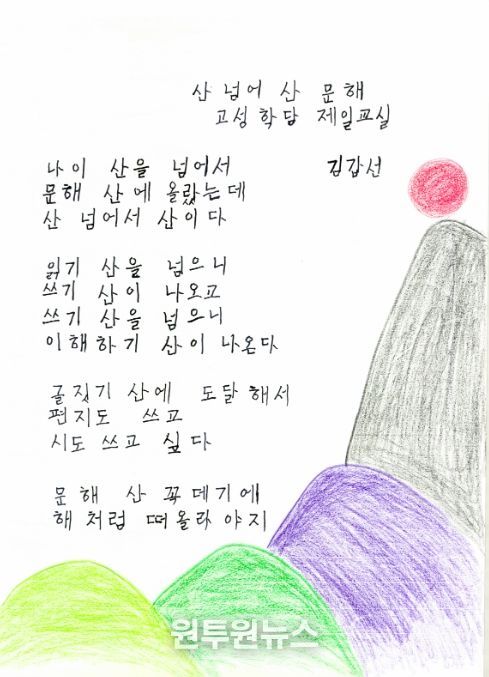 산 넘어 산 문해
고성학당 제일교실
김갑선
나이 산을 넘어서
문해 산에 올랐는데
산 넘어서 산이다
읽기 산을 넘으니
쓰기 산이 나오고
쓰기 산을 넘으니
이해하기 산이 나온다
글짓기 산에 도달해서
편지도 쓰고
시도 쓰고 싶다
문해 산 꼭데기에
해처럼 떠올라야지
원투원뉴스